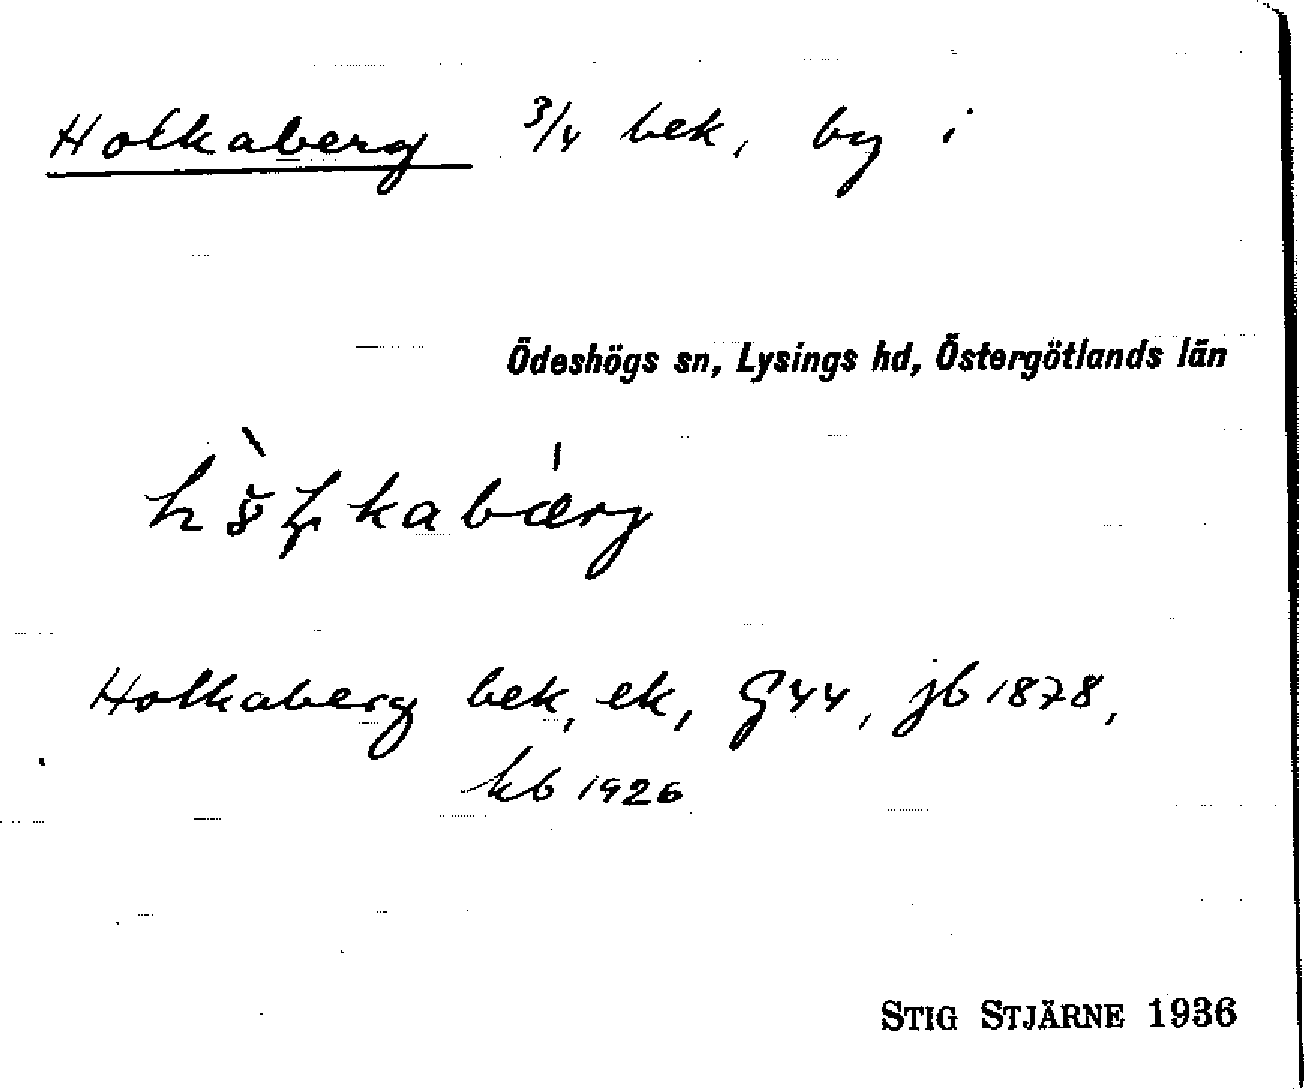 Holkaberg 3/4 bek, by i
Ödeshögs sn, Lysings hd, Östergötlands län
Holkaberg bek, ek, G44, jb 1878,
kb 1926
STIG STJÄRNE 1936